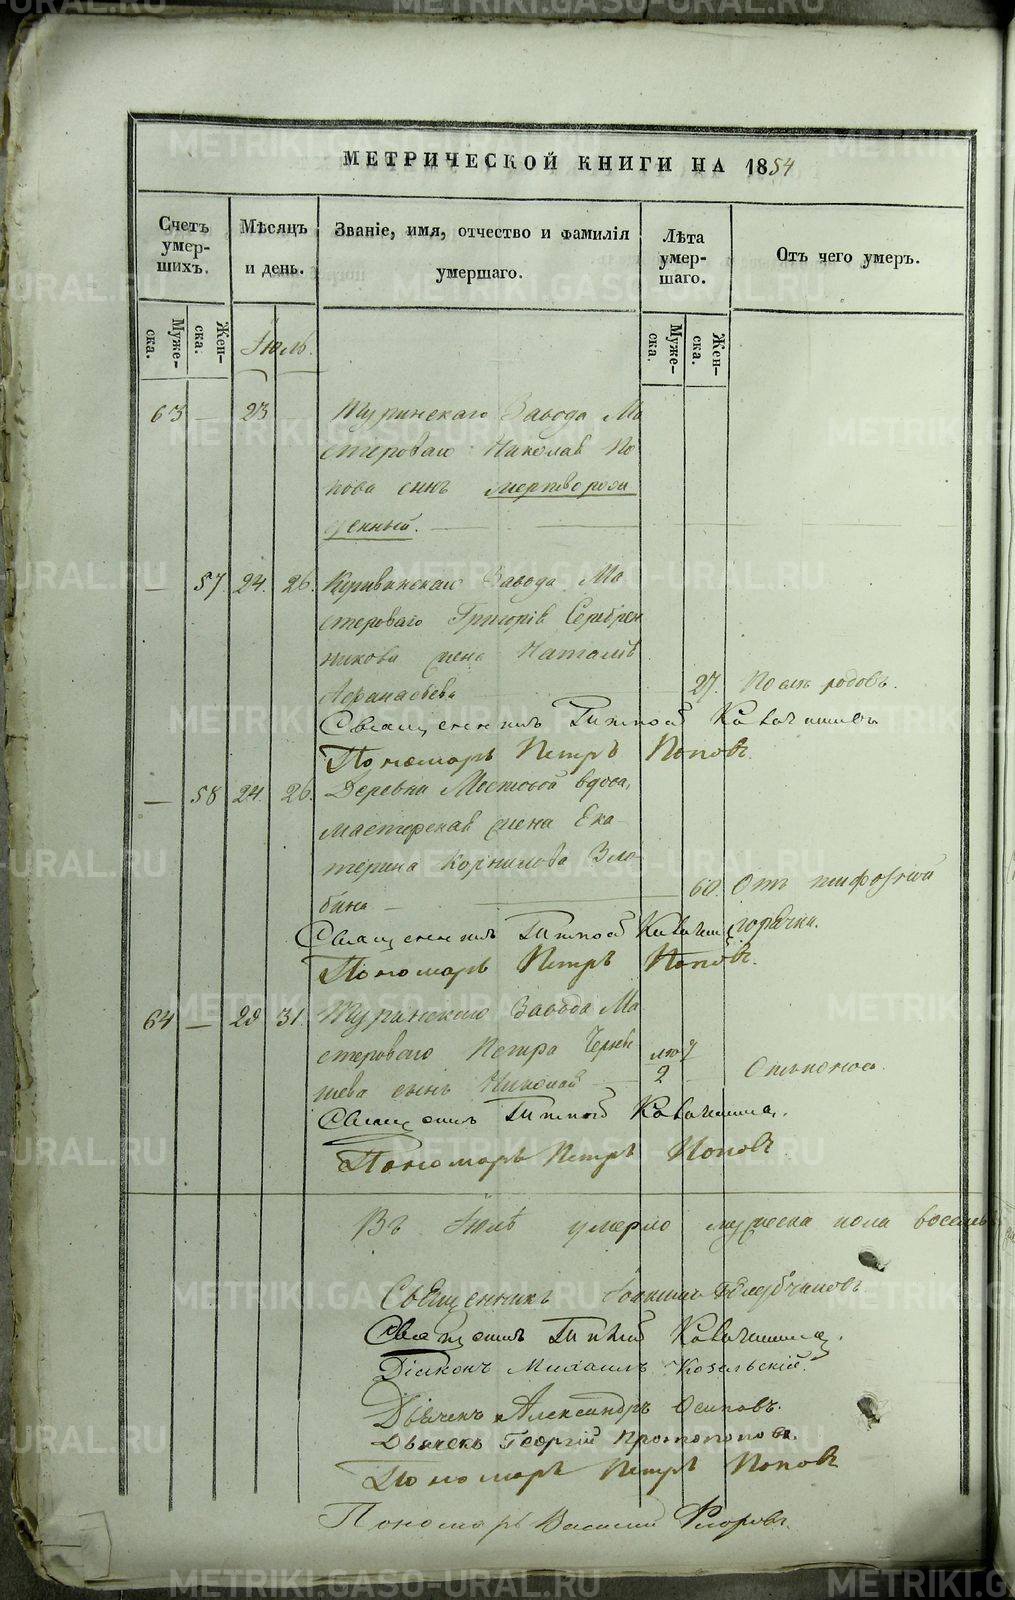 МЕТРИЧЕСКОЙ КНИГИ НА 1854
Счетъ умер-шихъ.
Мѣсяцъ и день.
Званіе, имя, отчество и фамилія умершаго.
Лѣта умер-шаго.
Отъ чего умеръ.
Муже-ска.
Жен-ска.
Муже-ска.
Жен-ска.
Іюль.
63 — 23 Туринскаго Завода Ма
стероваго Николая По
пова сынъ мертворож
денный.
— 57 24. 26. Кушвинскаго Завода Ма
стероваго Григорія Серебрен
никова жена Наталія
Афанасьева 27. Послѣ родовъ.
Священникъ
Пономарь Петръ Поповъ.
— 58 24. 26. Деревни Мостовой вдова,
мастерская жена Ека
терина Корнилова Зло
бина — 60. Отъ тифозной
Священникъ горячки.
Пономарь Петръ Поповъ.
64 — 28 31. Туринскаго Завода Ма
стероваго Петра Черны
шева сынъ Николай 2 Отъ поноса.
Священникъ
Пономарь Петръ Поповъ.
Въ Іюлѣ умерло мужеска пола восемь
Священникъ
Священникъ
Діаконъ Михаилъ Козельскій.
Дьячекъ Александръ Осиповъ.
Дьячекъ Георгій Протопоповъ.
Пономарь Петръ Поповъ
Пономарь Василий Флоровъ.
METRIKI.GASO-URAL.RU